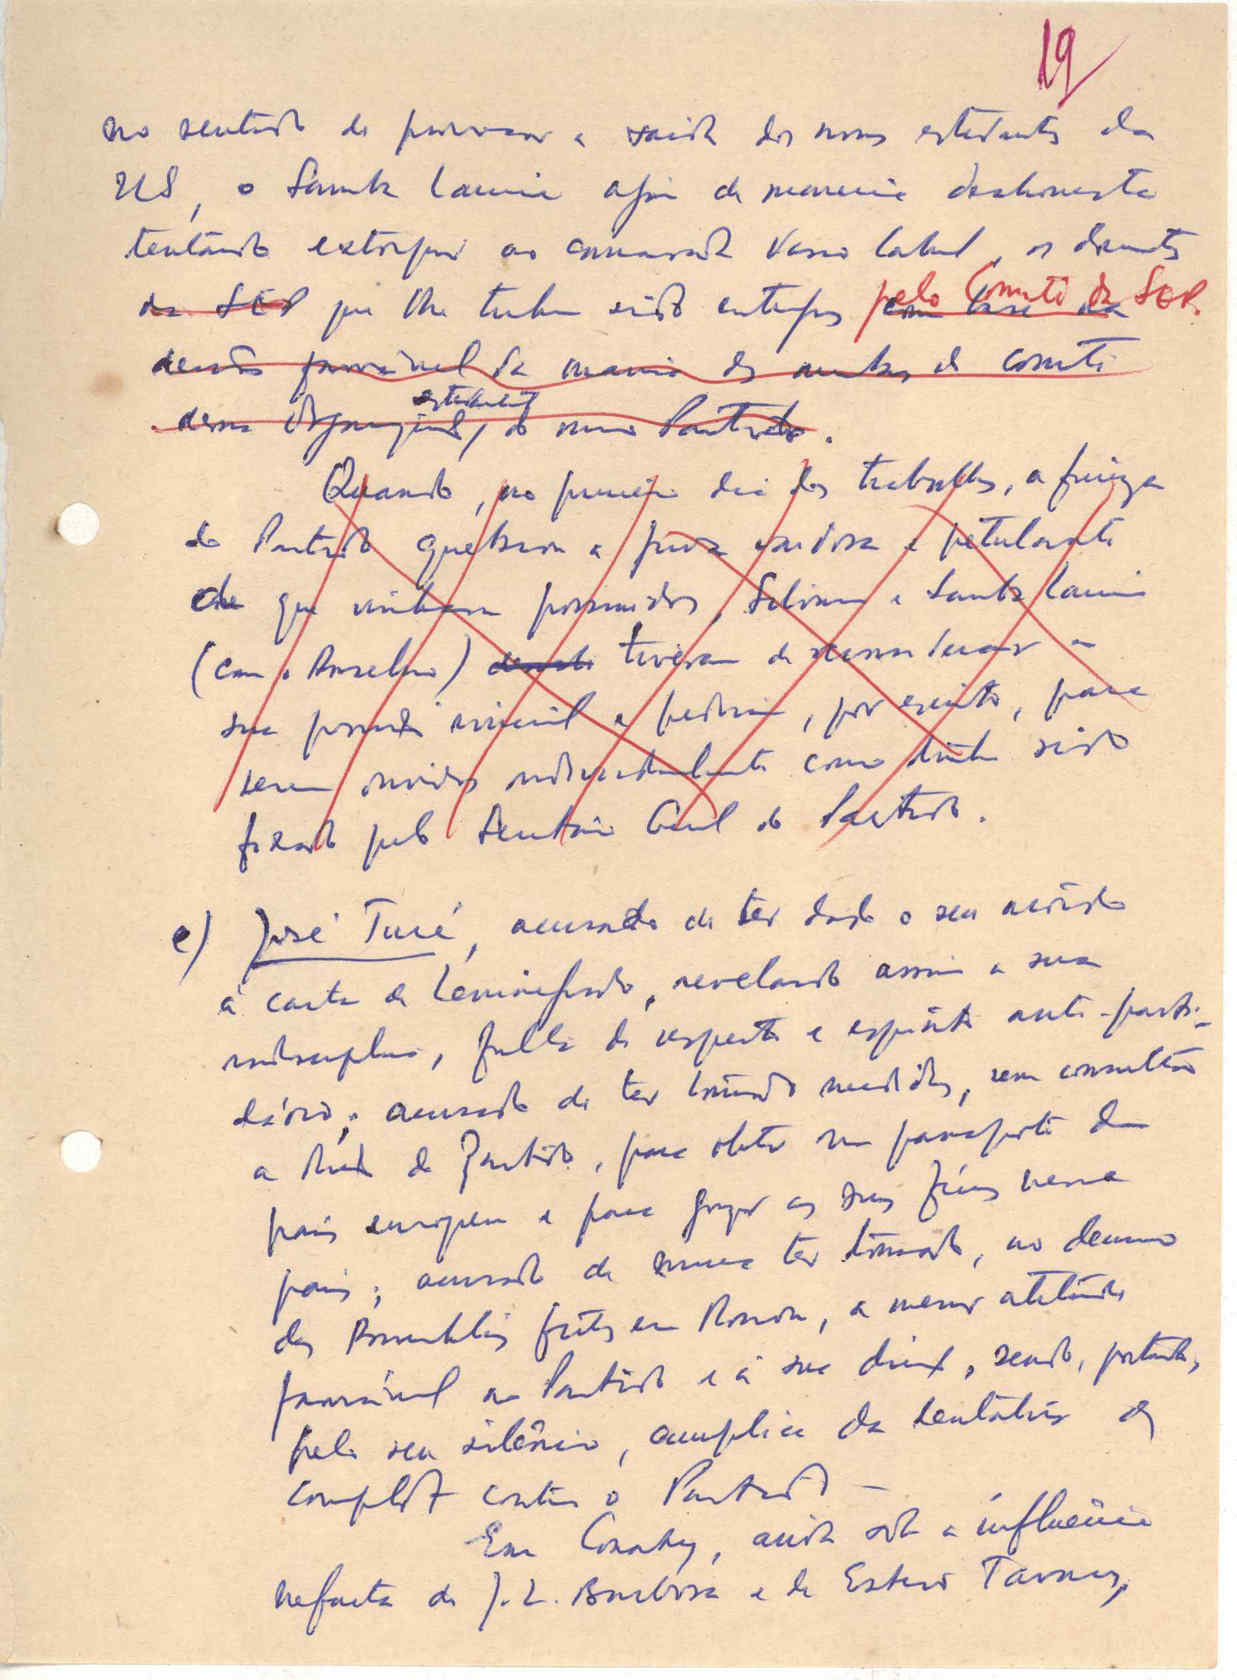 19
no sentido de provocar a saída dos novos estudantes da
US, o Samba Lamine agiu de maneira deshonesta
tentando extorquir ao camarada Vasco Cabral, os
pelo Comité da SEP.
da SEP que lhe tinham sido entregues com base na
decisão favorável da maioria dos membros do comité
estudantil
dessa Organização, do nosso Partido.
Quando, no primeiro dia dos trabalhos, a firmeza
do Partido quebrou a e petulante
de que vinham possuidos, e Samba Lamine
(com o Anselmo) tiveram de reconsiderar a
sua posição inicial e pediram, por escrito, para
serem ouvidos individualmente como tinha sido
fixado pelo Secretário Geral do Partido.
e) José Turé, acusado de ter dado o seu acôrdo
à carta de Leninegrado, revelando assim a sua
indisciplina, falta de respeito e espírito anti-parti-
dário; acusado de ter tomado medidas, sem consultar
a do Partido, para obter um passaporte dum
país europeu e para gozar as suas férias nesse
país; acusado de nunca ter tomado, no decurso
das Assembleias feitas em Moscou, a menor atitude
favorável ao Partido e à sua , sendo, portanto,
pelo seu silêncio, cumplice da tentativa de
complot contra o Partido.
Em Conakry, ainda sob a influência
nefasta de J. L. Barbosa e de Estevão Tavares,